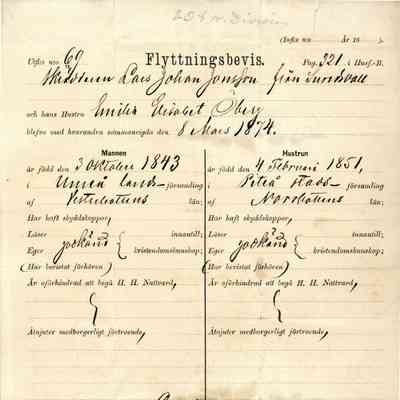 (Infls no År 18
Utfls no 69 Flyttningsbevis. Pag. 321 i Husf.-B.
Skräddaren Lars Johan Jonsson från Sundsvall
och hans Hustru Emilia Elisabet Öberg
blefvo med hvarandra sammanvigda den 8 Mars 1874.
Mannen
är född den 3 Oktober 1843
i Umeå lands- församling
af Vesterbottens län;
Har haft skyddskoppor,
Läser innantill;
Eger godkänd kristendomskunskap;
(Har bevistat förhören)
Är oförhindrad att begå H. H. Nattvard,
Åtnjuter medborgerligt förtroende,
Hustrun
är född den 4 Februari 1851,
i Piteå stads- församling
af Norrbottens län;
Har haft skyddskoppor,
Läser innantill;
Eger godkänd kristendomskunskap;
(Har bevistat förhören)
Är oförhindrad att begå H. H. Nattvard,
Åtnjuter medborgerligt förtroende,